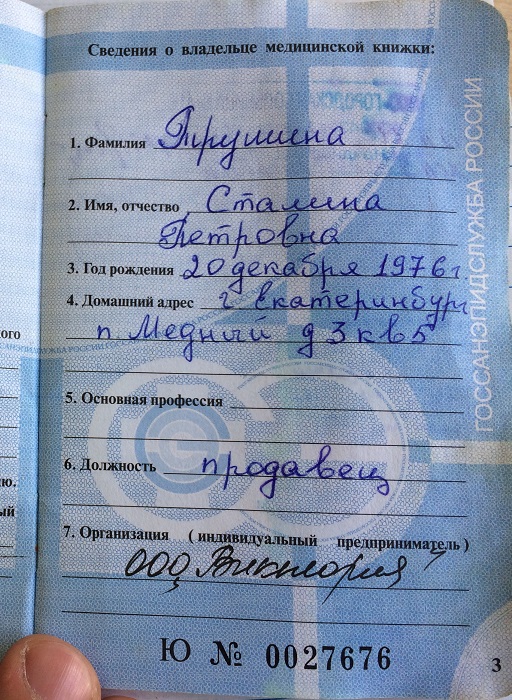 Сведения о владельце медицинской книжки:
1. Фамилия Трушина
2. Имя, отчество Сталина
Петровна
3. Год рождения 20 декабря 1976 г
4. Домашний адрес г Екатеринбург
п. Медный д 3 кв 5
5. Основная профессия
6. Должность продавец
7. Организация ( индивидуальный предприниматель )
ООО Виктория
Ю № 0027676
3
ГОССАНЭПИДСЛУЖБА РОССИИ
ого
ю.
ый